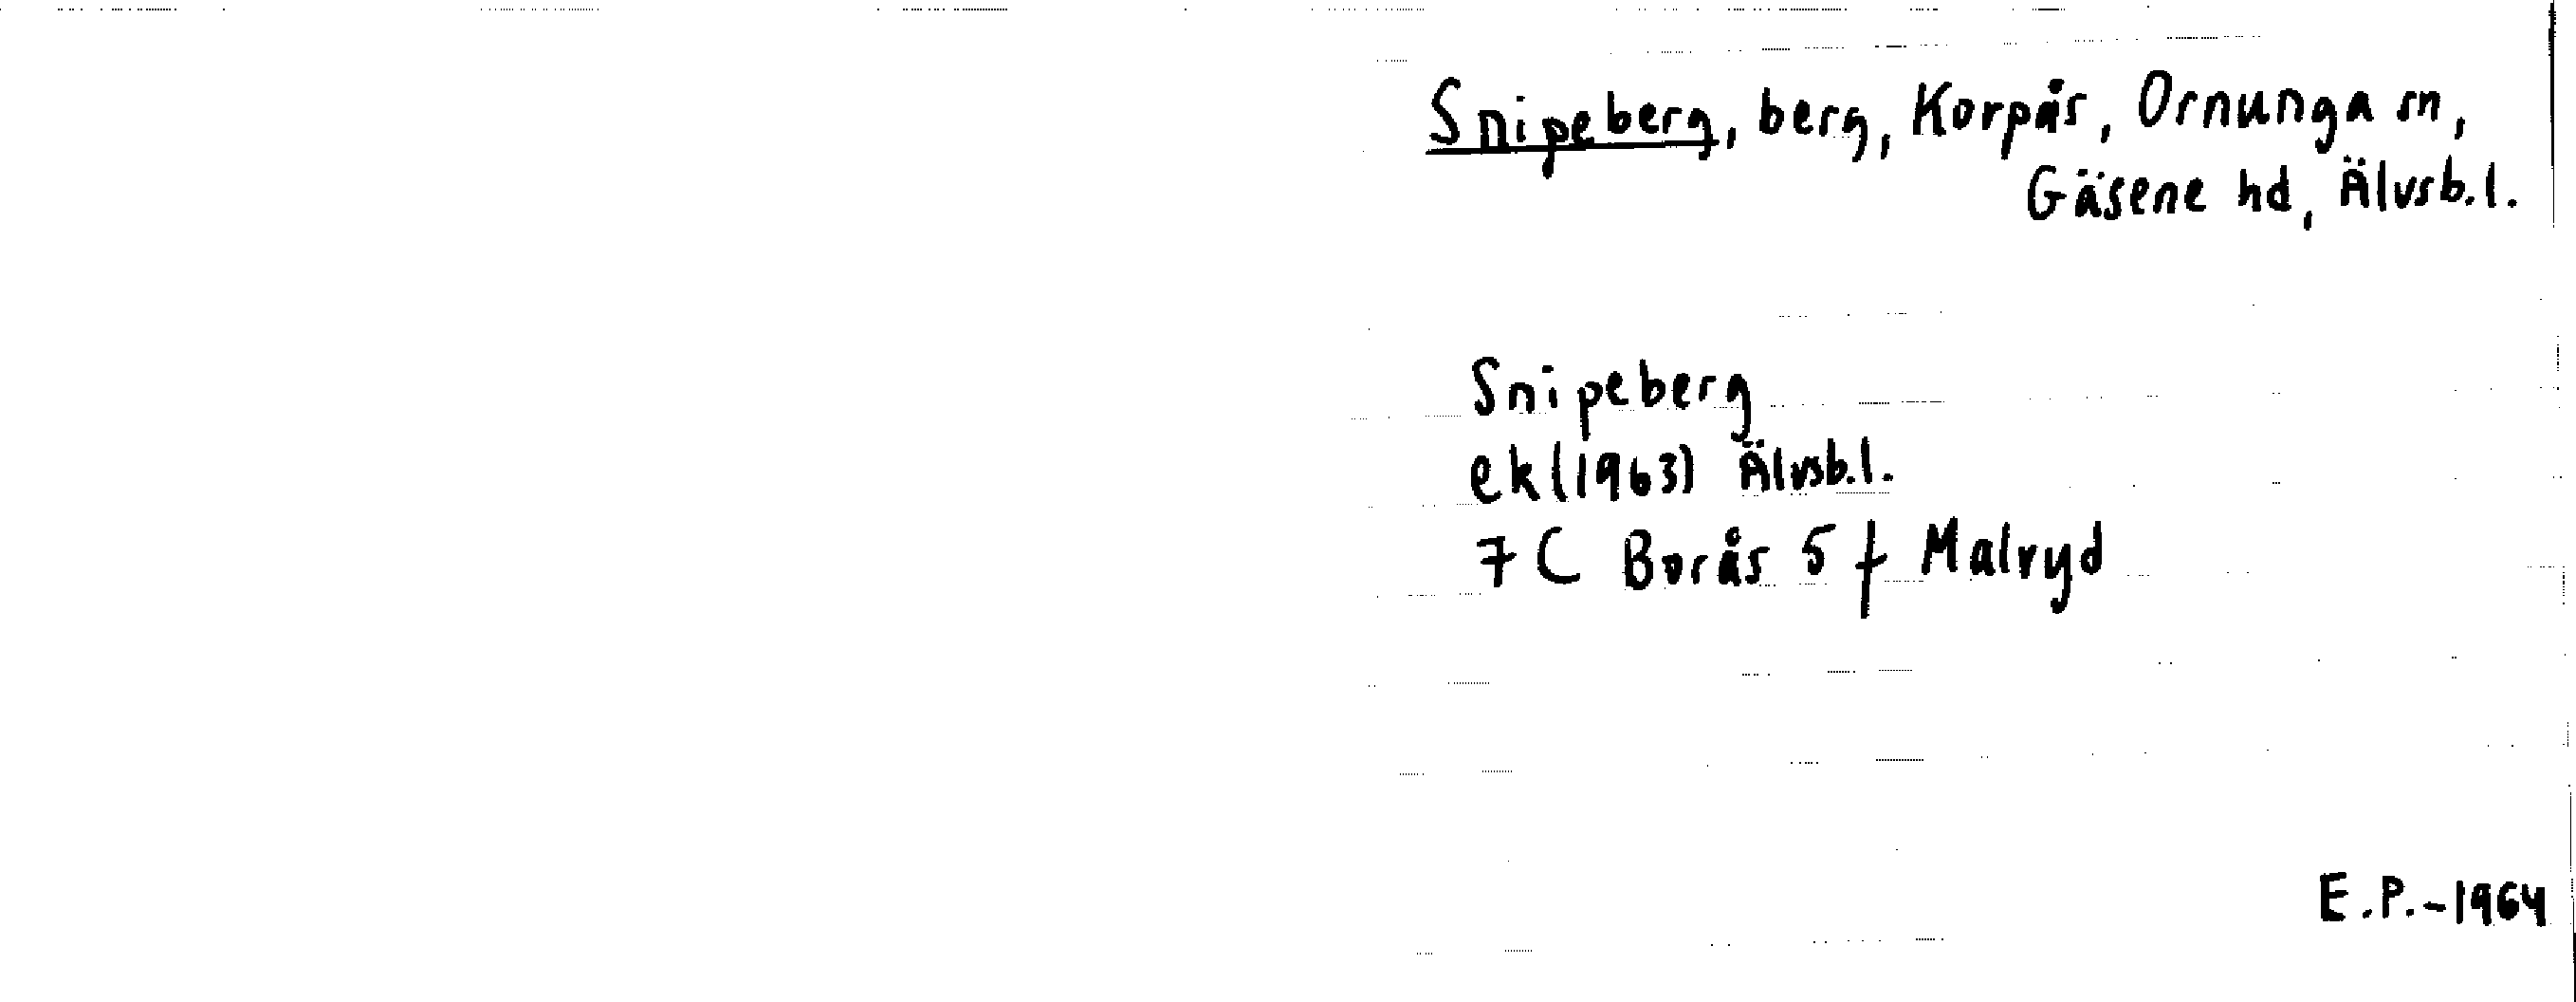 Snipeberg, berg, Korpås, Ornunga sn,
Gäsene hd, Älvsb.l.
Snipeberg
ek (1963) Älvsb.l.
7 C Borås 5 f Malryd
E.P.-1964